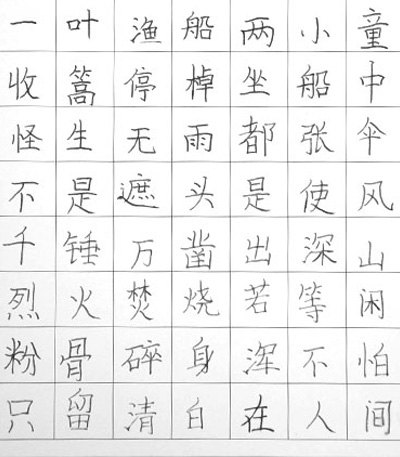 一叶渔船两小童
收篙停棹坐船中
怪生无雨都张伞
不是遮头是使风
千锤万凿出深山
烈火焚烧若等闲
粉骨碎身浑不怕
只留清白在人间